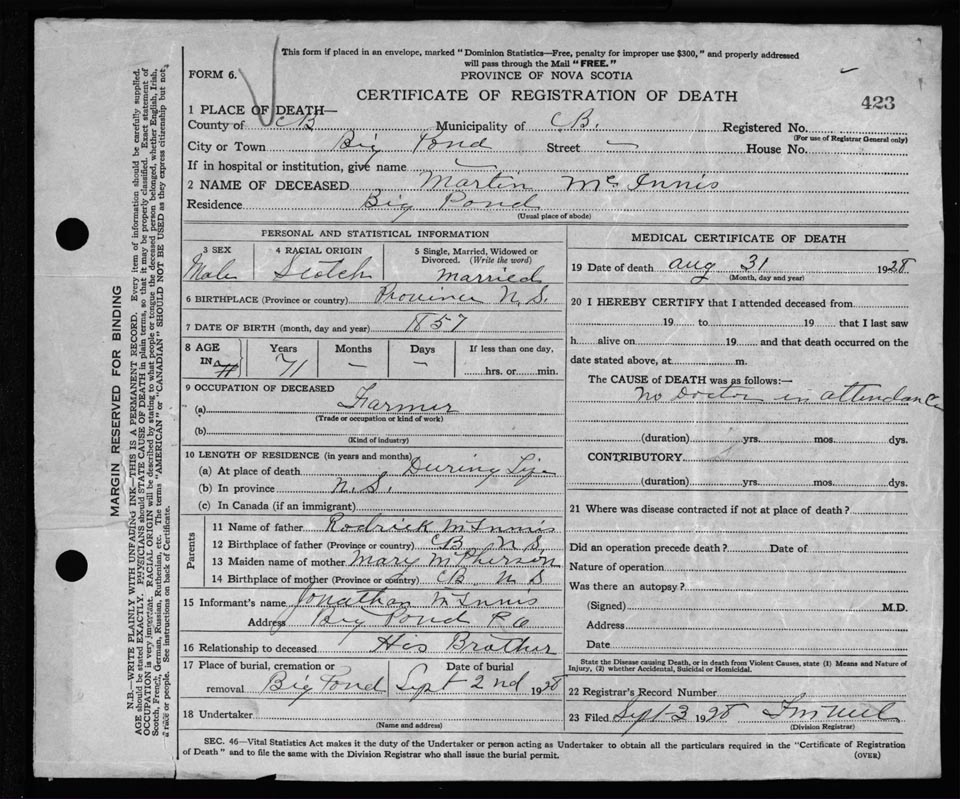 This form if placed in an envelope, marked "Dominion Statistics—Free, penalty for improper use $300," and properly addressed
will pass through the Mail "FREE."
FORM 6.
PROVINCE OF NOVA SCOTIA
CERTIFICATE OF REGISTRATION OF DEATH
423
1 PLACE OF DEATH—
County of CB Municipality of C.B. Registered No.
(For use of Registrar General only)
City or Town Big Pond Street — House No.
If in hospital or institution, give name —
2 NAME OF DECEASED Martin McInnis
Residence Big Pond
(Usual place of abode)
PERSONAL AND STATISTICAL INFORMATION
3 SEX 4 RACIAL ORIGIN 5 Single, Married, Widowed or
Divorced. (Write the word)
Male Scotch married
6 BIRTHPLACE (Province or country) Province N.S.
7 DATE OF BIRTH (month, day and year) 1857
8 AGE Years Months Days If less than one day,
IN 71 — — hrs. or min.
9 OCCUPATION OF DECEASED
(a) Farmer
(Trade or occupation or kind of work)
(b)
(Kind of industry)
10 LENGTH OF RESIDENCE (in years and months)
(a) At place of death During Life
(b) In province N.S.
(c) In Canada (if an immigrant)
Parents
11 Name of father Rodrick McInnis
12 Birthplace of father (Province or country) CB N S
13 Maiden name of mother Mary McPherson
14 Birthplace of mother (Province or country) CB N S
15 Informant's name Jonathan McInnis
Address Big Pond
16 Relationship to deceased His Brother
17 Place of burial, cremation or Date of burial
removal Big Pond Sept 2nd 1928
18 Undertaker
(Name and address)
MEDICAL CERTIFICATE OF DEATH
19 Date of death Aug 31 1928
(Month, day and year)
20 I HEREBY CERTIFY that I attended deceased from
19 to 19 that I last saw
h alive on 19 and that death occurred on the
date stated above, at m.
The CAUSE of DEATH was as follows:—
No Doctor in attendance
(duration) yrs. mos. dys.
CONTRIBUTORY
(duration) yrs. mos. dys.
21 Where was disease contracted if not at place of death?
Did an operation precede death? Date of
Nature of operation
Was there an autopsy?
(Signed) M.D.
Address
Date
State the Disease causing Death, or in death from Violent Causes, state (1) Means and Nature of
Injury, (2) whether Accidental, Suicidal or Homicidal.
22 Registrar's Record Number
23 Filed Sept 3 1928
(Division Registrar)
SEC. 46—Vital Statistics Act makes it the duty of the Undertaker or person acting as Undertaker to obtain all the particulars required in the "Certificate of Registration
of Death" and to file the same with the Division Registrar who shall issue the burial permit.
(OVER)
MARGIN RESERVED FOR BINDING
N.B.—WRITE PLAINLY WITH UNFADING INK—THIS IS A PERMANENT RECORD. Every item of information should be carefully supplied.
AGE should be stated EXACTLY. PHYSICIANS should STATE CAUSE OF DEATH in plain terms, so that it may be properly classified. Exact statement of
OCCUPATION is very important. RACIAL ORIGIN will be described by stating to what people or tongue the deceased person belonged, whether English, Irish,
Scotch, French, German, Russian, Ruthenian, etc. The terms "AMERICAN" or "CANADIAN" SHOULD NOT BE USED as they express citizenship but not
a race or people. See instructions on back of Certificate.